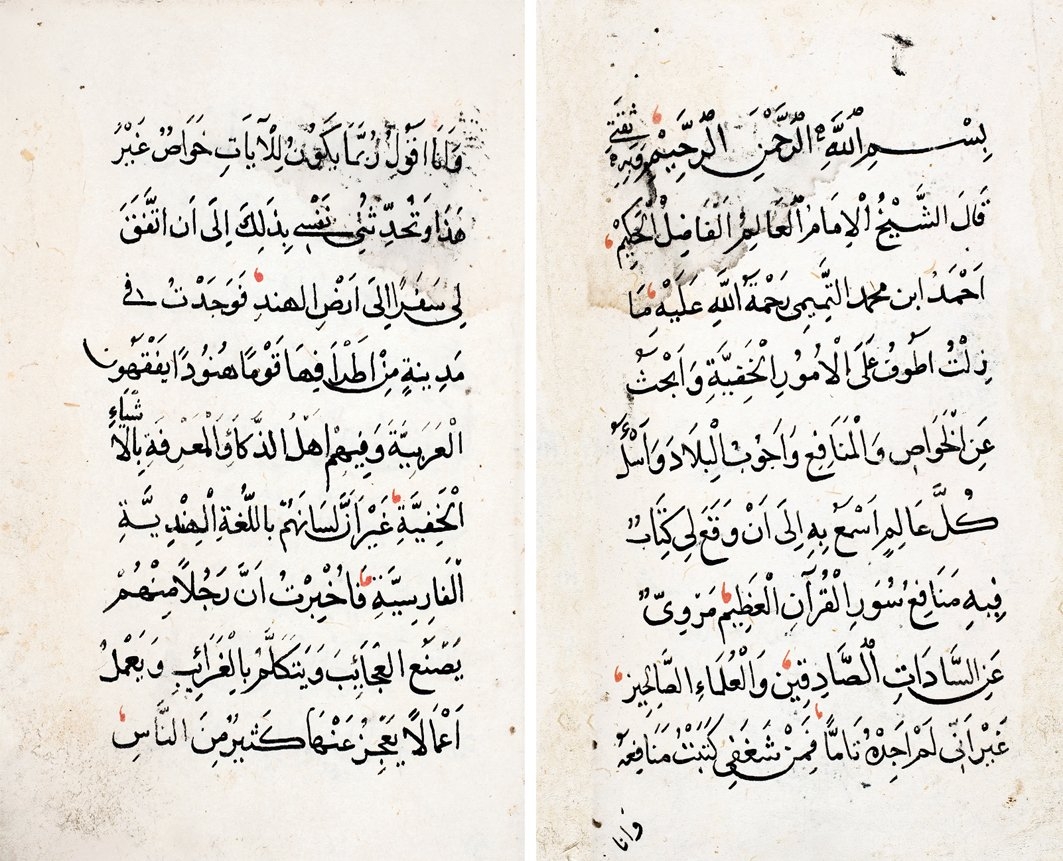 بِسْمِ اللَّهِ الرَّحْمَنِ الرَّحِيمِ وَبِهِ ثِقَتِي
قَالَ الشَّيْخُ الْاِمَامُ الْعَالِمُ الْفَاضِلُ الْحَكِيمُ
اَحْمَدُ ابن محمد التَّمِيمِى رَحْمَةُ اللَّهِ عَلَيْهِ مَا
زِلْتُ اَطُوفُ عَلَى الْاُمُورِ الْخَفِيَّةِ وَاَبْحَثُ
عَنِ الْخَوَاصِ وَالْمَنَافِعِ وَاَجُوبُ الْبِلَادَ وَاَسْأَلُ
كُلَّ عَالِمٍ اَسْمَعُ بِهِ اِلَى اَنْ وَقَعَ لِى كِتَابٌ
فِيهِ مَنَافِعُ سُوَرِ الْقُرْآنِ الْعَظِيمِ مَرْوِىٌّ
عَنِ السَّادَاتِ الصَّادِقِينَ وَالْعُلَمَاءِ الصَّالِحِينَ
غَيْرَ اَنِّى لَمْ اَجِدْهُ تَامًّا فَمِنْ شَغَفِى كَتَبْتُ مَنَافِعَهُ
وانا
وَاَنَا اَقُولُ رُبَّمَا يَكُونُ لِلْآيَاتِ خَوَاصٌ غَيْرُ
هَذَا وَتُحَدِّثُنِى نَفْسِى بِذَلِكَ اِلَى اَنِ اتَّفَقَ
لِى سَفَرًا اِلَى اَرْضِ الهند فَوَجَدْتُ فى
مَدِينَةٍ مِنْ فِيهَا قَوْمًا هُنُودًا يَفْقَهُونَ
الْعَرَبِيَّةَ وَفِيهِمْ اَهْلُ الذَّكَاءِ وَالْمَعْرِفَةِ بِالْاَشْيَاءِ
الْخَفِيَّةِ غَيْرَ اَنَّ لِسَانَهُمْ بِاللُّغَةِ الْهِنْدِيَّةِ
الْفَارِسِيَّةِ فَاُخْبِرْتُ اَنَّ رَجُلًا مِنْهُمْ
يَصْنَعُ الْعَجَائِبَ وَيَتَكَلَّمُ بِالْغَرَائِبِ وَيَعْمَلُ
اَعْمَالًا يَعْجِزُ عَنْهَا كَثِيرٌ مِنَ النَّاسِ